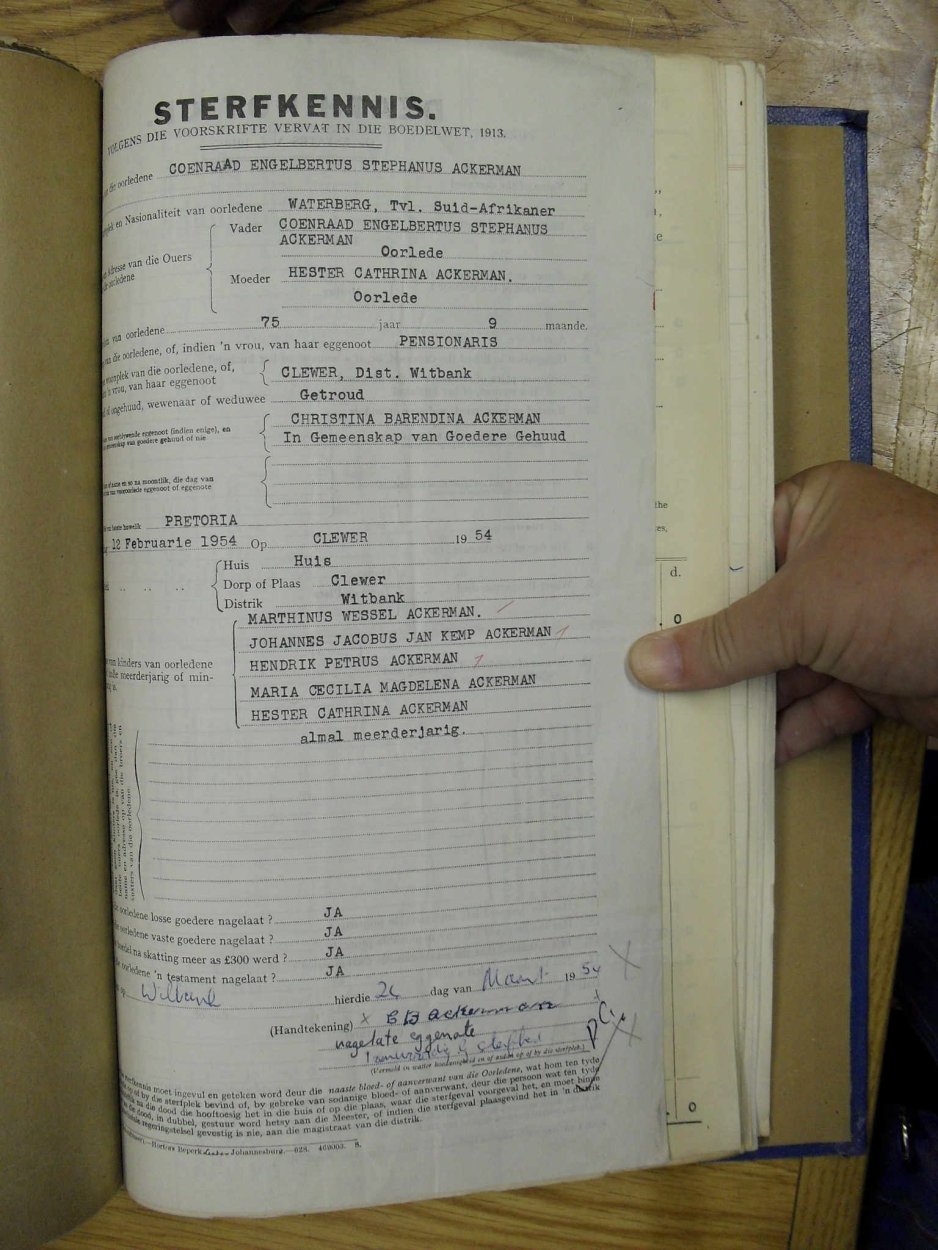 STERFKENNIS.
VOLGENS DIE VOORSKRIFTE VERVAT IN DIE BOEDELWET, 1913.
die oorledene COENRAAD ENGELBERTUS STEPHANUS ACKERMAN
en Nasionaliteit van oorledene WATERBERG, Tvl. Suid-Afrikaner
Vader COENRAAD ENGELBERTUS STEPHANUS
ACKERMAN
Adresse van die Ouers
Oorlede
Moeder HESTER CATHRINA ACKERMAN.
Oorlede
van oorledene 75 jaar 9 maande.
van die oorledene, of, indien 'n vrou, van haar eggenoot PENSIONARIS
van die oorledene, of,
vrou, van haar eggenoot CLEWER, Dist. Witbank
of ongehuud, wewenaar of weduwee Getroud
eggenoot (indien enige), en CHRISTINA BARENDINA ACKERMAN
gemeenskap van goedere gehuud of nie In Gemeenskap van Goedere Gehuud
en so na moontlik, die dag van
eggenoot of eggenote
PRETORIA
12 Februarie 1954 Op CLEWER 19 54
Huis Huis
Dorp of Plaas Clewer
Distrik Witbank
MARTHINUS WESSEL ACKERMAN.
JOHANNES JACOBUS JAN KEMP ACKERMAN
van kinders van oorledene HENDRIK PETRUS ACKERMAN
meerderjarig of min- MARIA CECILIA MAGDELENA ACKERMAN
HESTER CATHRINA ACKERMAN
almal meerderjarig.
oorledene losse goedere nagelaat ? JA
oorledene vaste goedere nagelaat ? JA
na skatting meer as £300 werd ? JA
oorledene 'n testament nagelaat ? JA
op Witbank hierdie dag van Maart 19 54
(Handtekening) x C B Ackerman
nagelate eggenote
sterfbed
(Vermeld in watter hoedanigheid en of anders op of by die sterfplek.)
sterfkennis moet ingevul en geteken word deur die naaste bloed- of aanverwant van die Oorledene, wat hom ten tyde
of by die sterfplek bevind of, by gebreke van sodanige bloed- of aanverwant, deur die persoon wat ten tyde
die dood die hooftoesig het in die huis of op die plaas, waar die sterfgeval voorgeval het, en moet binne
die dood, in dubbel, gestuur word hetsy aan die Meester, of indien die sterfgeval plaasgevind het in 'n distrik
regeringstelsel gevestig is nie, aan die magistraat van die distrik.
Beperk Johannesburg.
the
d.
0
0